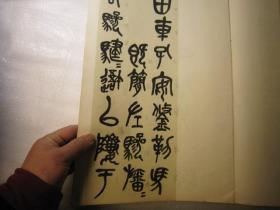 田車孔安鋚勒馬
既簡左驂旛=
右驂騝=避以隮于